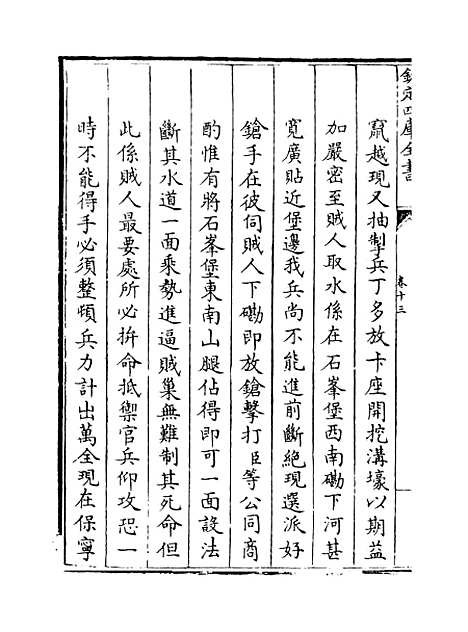 欽定四庫全書
卷十三
竄越現又抽掣兵丁多放卡座開挖溝壕以期益
加嚴密至賊人取水係在石峯堡西南磡下河甚
寬廣貼近堡邊我兵尚不能進前斷絕現選派好
鎗手在彼伺賊人下磡即放鎗擊打臣等公同商
酌惟有將石峯堡東南山腿佔得即可一面設法
斷其水道一面乘勢進逼賊巢無難制其死命但
此係賊人最要處所必拚命抵禦官兵仰攻恐一
時不能得手必須整頓兵力計出萬全現在保寧